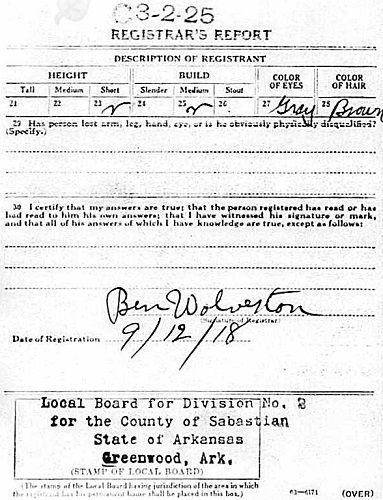 C3-2-25
REGISTRAR'S REPORT
DESCRIPTION OF REGISTRANT
HEIGHT BUILD COLOR OF EYES COLOR OF HAIR
Tall Medium Short Slender Medium Stout
21 22 23 ✓ 24 25 ✓ 26 27 Gray 28 Brown
29 Has person lost arm, leg, hand, eye, or is he obviously physically disqualified?
(Specify.)
30 I certify that my answers are true; that the person registered has read or has
had read to him his own answers; that I have witnessed his signature or mark,
and that all of his answers of which I have knowledge are true, except as follows:
Ben Wolverton
(Signature of Registrar)
Date of Registration 9/12/18
Local Board for Division No. 2
for the County of Sabastian
State of Arkansas
Greenwood, Ark.
(STAMP OF LOCAL BOARD)
(The stamp of the Local Board having jurisdiction of the area in which
the registrant has his permanent home shall be placed in this box.) 03-6171 (OVER)